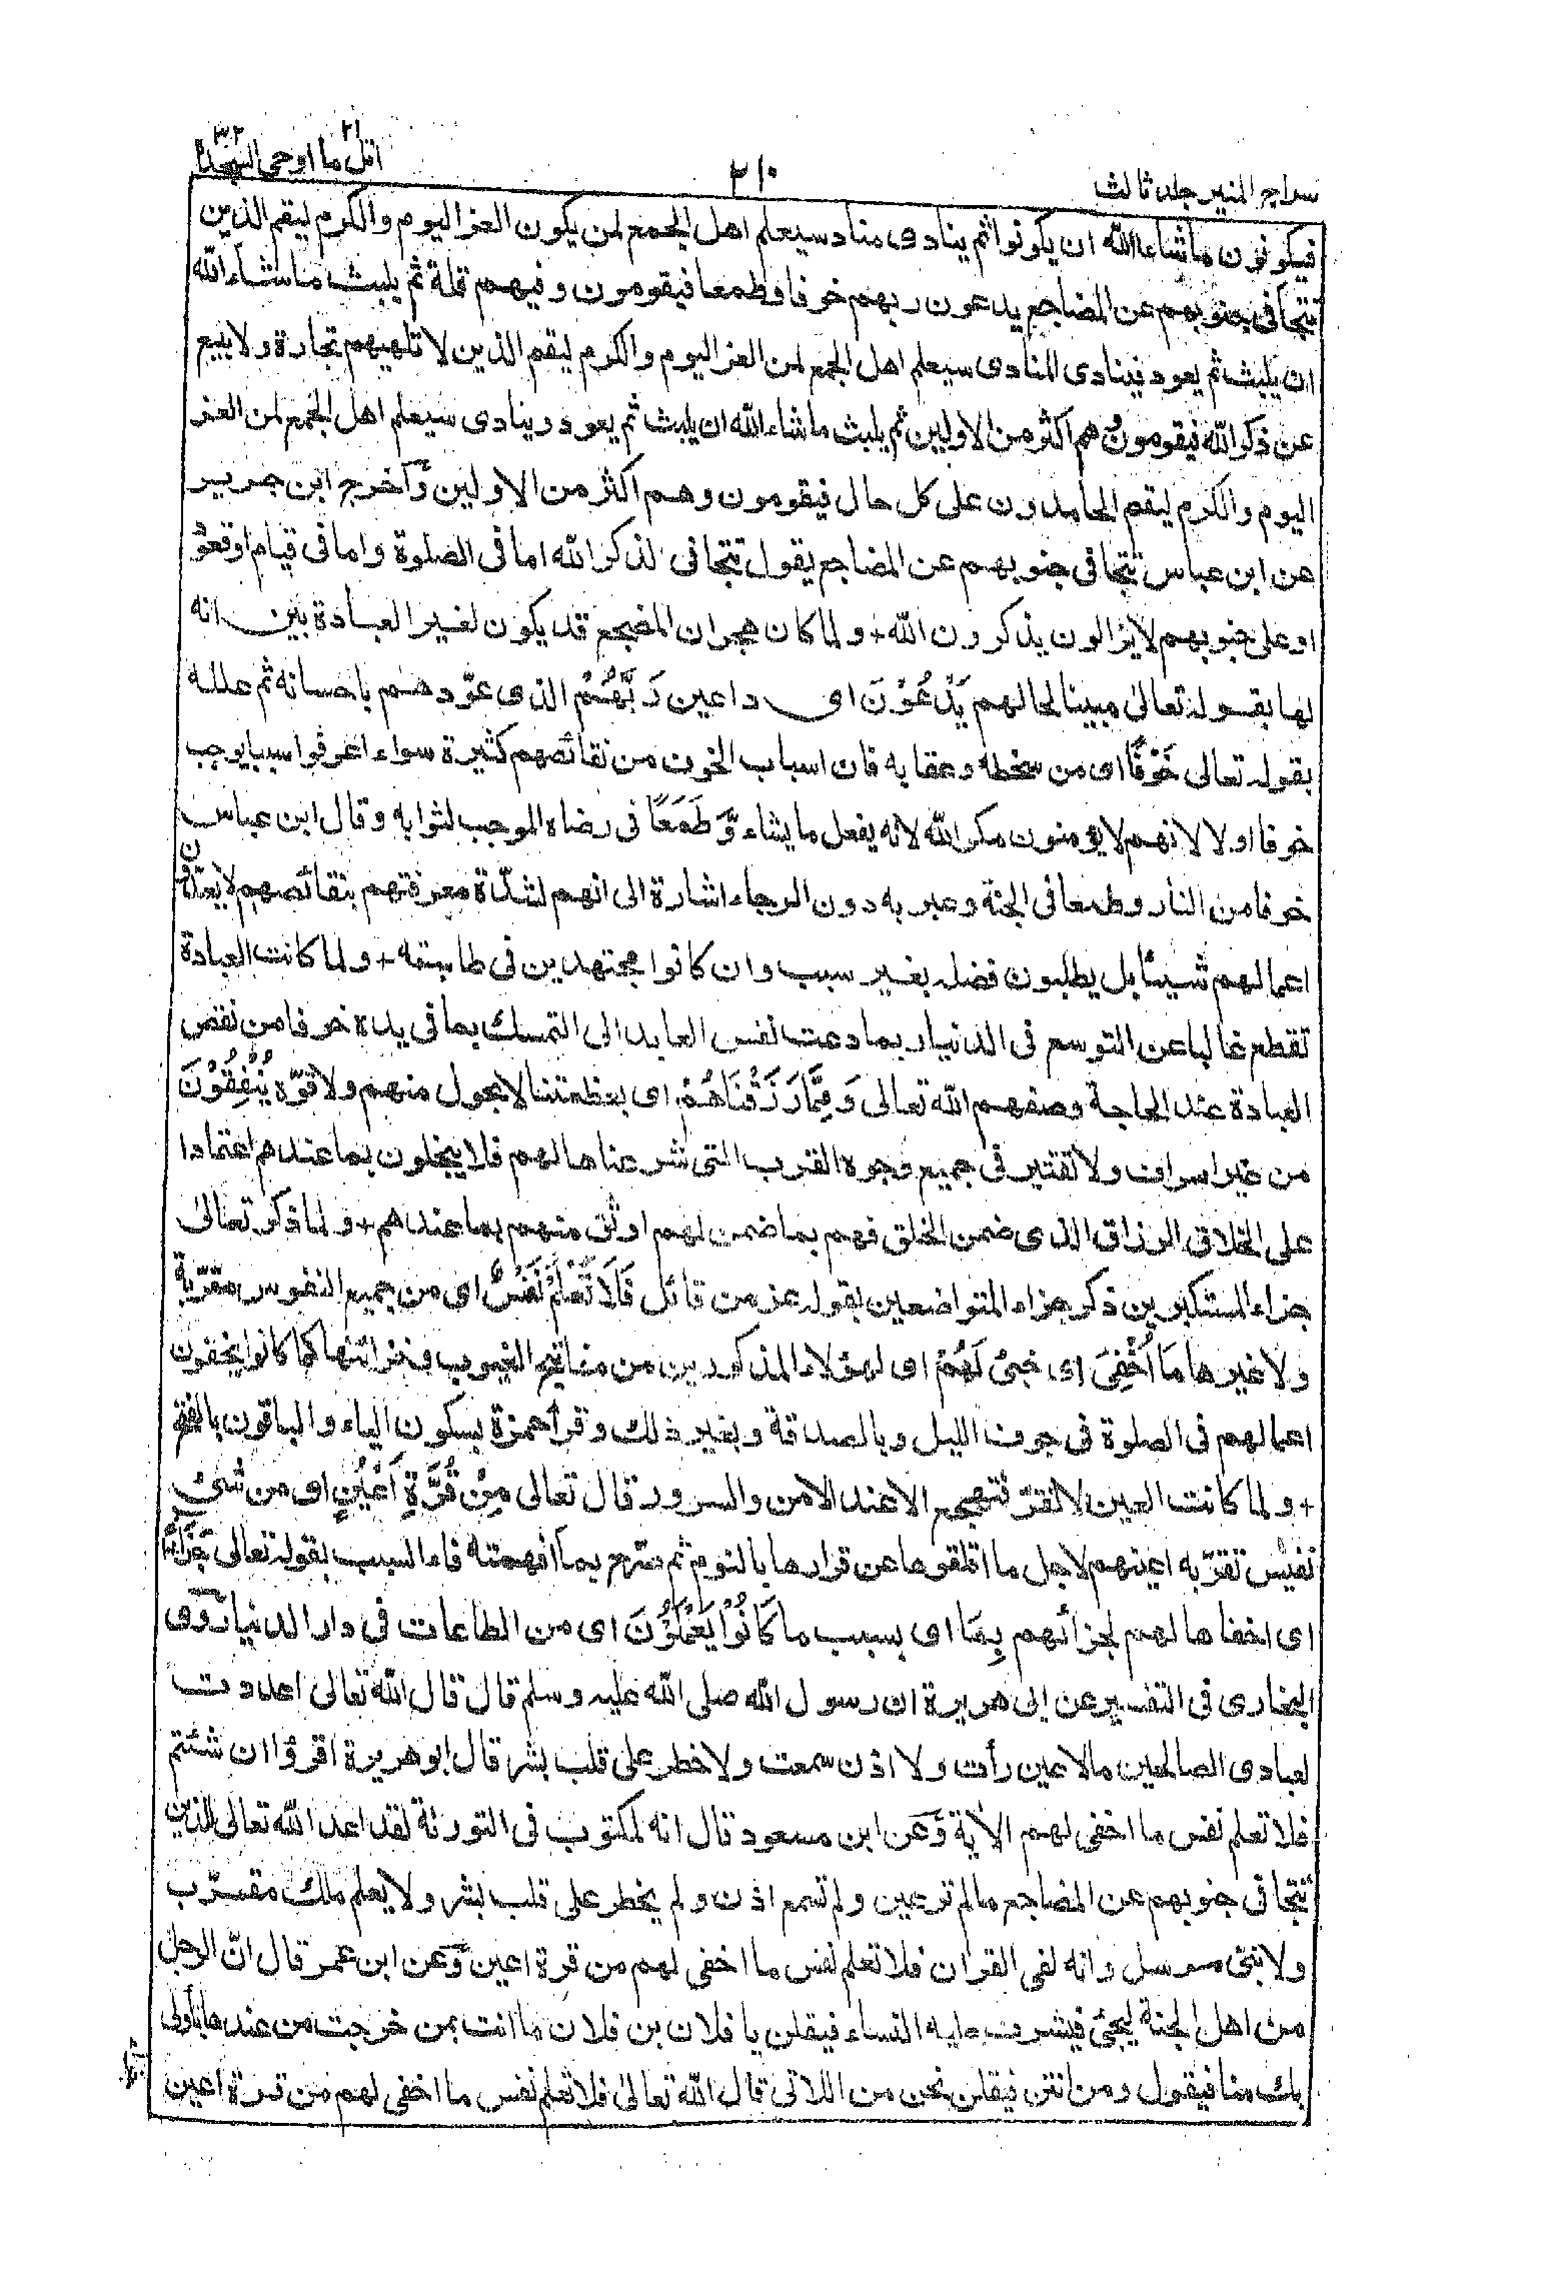 سراج المنير جلد ثالث
٢١٠
اتل ما اوحى ٢١
السجدة ٣٢
فيكونون ماشاءالله ان يكونوا ثم ينادى مناد سيعلم اهل الجمع لمن يكون العز اليوم والكرم ليقم الذين
تتجافى جنوبهم عن المضاجع يدعون ربهم خوفا وطمعا فيقومون وفيهم قلة ثم يلبث ماشاء الله
ان يلبث ثم يعود فينادى المنادى سيعلم اهل الجمع لمن العز اليوم والكرم ليقم الذين لا تلهيهم تجارة ولا بيع
عن ذكر الله فيقومون هم اكثر من الاولين ثم يلبث ماشاء الله ان يلبث ثم يعود وينادى سيعلم اهل الجمع لمن العز
اليوم والكرم ليقم الحامدون على كل حال فيقومون وهم اكثر من الاولين وآخرج ابن جرير
عن ابن عباس تتجافى جنوبهم عن المضاجع يقول تتجافى لذكر الله اما فى الصلوة واما فى قيام اوقعود
او على جنوبهم لايزالون يذكرون الله + ولما كان هجران المضجع قد يكون لغير العبادة بين انه
لها بقوله تعالىٰ مبينا لحالهم يَدْعُوْنَ اى داعين رَبَّهُمْ الذى عوّدهم باحسانه ثم علله
بقوله تعالى خَوْفًا اى من سخطه وعقابه فان اسباب الخوف من نقائصهم كثيرة سواء اعرفوا سببا يوجب
خوفا او لا لانهم لا يؤمنون مكر الله لانه يفعل ما يشاء وَّطَمَعًا فى رضاه الموجب لثوابه وقال ابن عباس
خوفا من النار وطمعا فى الجنة وعبر به دون الرجاء اشارة الى انهم لشدّة معرفتهم بنقائصهم لايعدّون
اعمالهم شيئا بل يطلبون فضله بغير سبب وان كانوا مجتهدين فى طاعته + ولما كانت العبادة
تقطع غالبا عن التوسع فى الدنيا ربما دعت نفس العابد الى التمسك بما فى يده خوفا من نقص
العبادة عند الحاجة وصفهم الله تعالى وَمِمَّا رَزَقْنَاهُمْ اى بعظمتنا لا بحول منهم ولا قوّة يُنْفِقُوْنَ
من غير اسراف ولا تقتير فى جميع وجوه القرب التى شرعناها لهم فلا يبخلون بما عندهم اعتمادا
على الخلاق الرزاق الذى ضمن الخلق فهم بما ضمن لهم اوثق منهم بما عندهم + ولما ذكر تعالىٰ
جزاء المستكبرين ذكر جزاء المتواضعين بقوله عز من قائل فَلَا تَعْلَمُ نَفْسٌ اى من جميع النفوس مقرّبة
ولا غيرها مَا اُخْفِىَ اى خبئ لَهُمْ اى لهؤلاء المذكورين من مفاتيح الغيوب وخزائنها كما كانوا يخفون
اعمالهم فى الصلوة فى جوف الليل وبالصدقة وبغير ذلك وقرأ حمزة بسكون الياء والباقون بالفتح
+ ولما كانت العين لا تقرّ فتهجع الا عند الامن والسرور قال تعالى مِنْ قُرَّةِ اَعْيُنٍ اى من شىء
نفيس تقرّ به اعينهم لاجل ما اقلقوها عن قرارها بالنوم ثم صرح بما افهمته فاء السبب بقوله تعالى جَزَآءً
اى اخفاها لهم لجزائهم بِمَا اى بسبب ما كَانُوْا يَعْمَلُوْنَ اى من الطاعات فى دار الدنيا روى
البخارى فى التفسير عن ابى هريرة ان رسول الله صلى الله عليه وسلم قال قال الله تعالى اعددت
لعبادى الصالحين مالا عين رأت ولا اذن سمعت ولا خطر على قلب بشر قال ابو هريرة اقرؤا ان شئتم
فلا تعلم نفس ما اخفى لهم الآية وعن ابن مسعود قال انه لمكتوب فى التورىة لقد اعد الله تعالى للذين
تتجافى جنوبهم عن المضاجع مالم تر عين ولم تسمع اذن ولم يخطر على قلب بشر ولا يعلم ملك مقرّب
ولا نبى مرسل وانه لفى القران فلا تعلم نفس ما اخفى لهم من قرة اعين وعن ابن عمر قال انّ الرجل
من اهل الجنة ليجئ فيشرف عليه النساء فيقلن يا فلان بن فلان ما انت بمن خرجت من عندها باولى
بك منا فيقول ومن انتن فيقلن نحن من اللاتى قال الله تعالىٰ فلا تعلم نفس ما اخفى لهم من قرة اعين